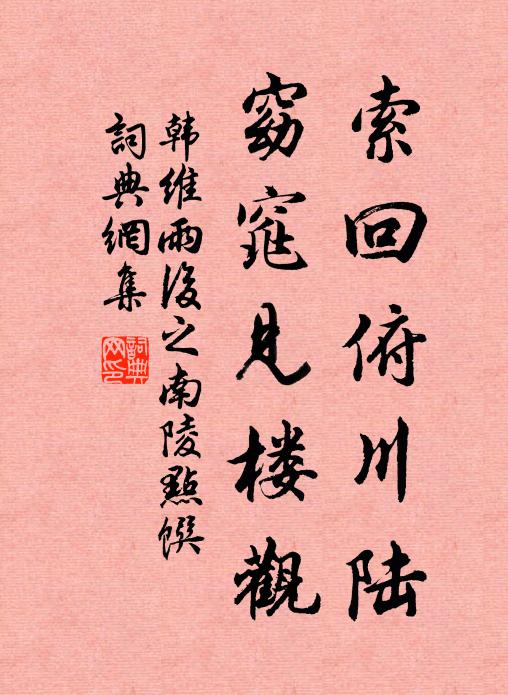 索回俯川陆
窈窕见楼觀
韩维雨後之南陵點饌
詞典網集
詞典网印